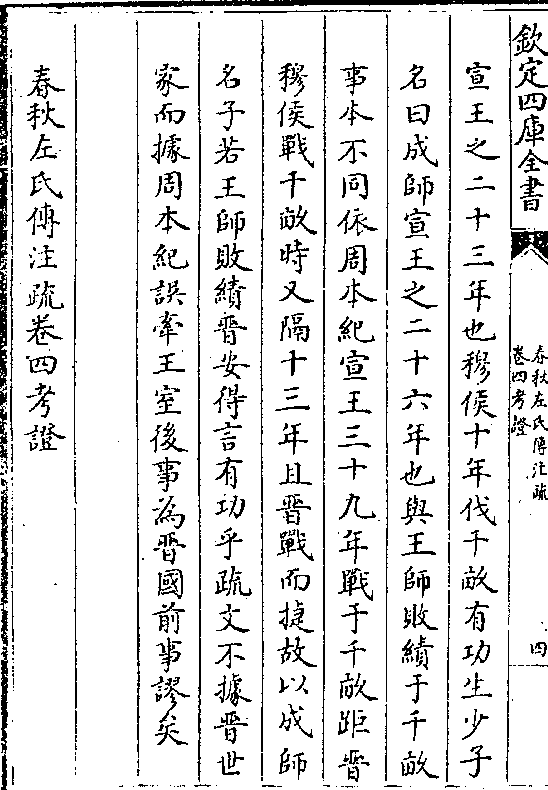 欽定四庫全書
春秋左氏傳注疏
卷四考證
四
宣王之二十三年也穆侯十年伐千畝有功生少子
名曰成師宣王之二十六年也與王師敗績于千畝
事本不同依周本紀宣王三十九年戰于千畝距晉
穆侯戰千畝時又隔十三年且晉戰而捷故以成師
名子若王師敗績晉安得言有功乎疏文不據晉世
家而據周本紀誤牽王室後事為晉國前事謬矣
春秋左氏傳注疏卷四考證